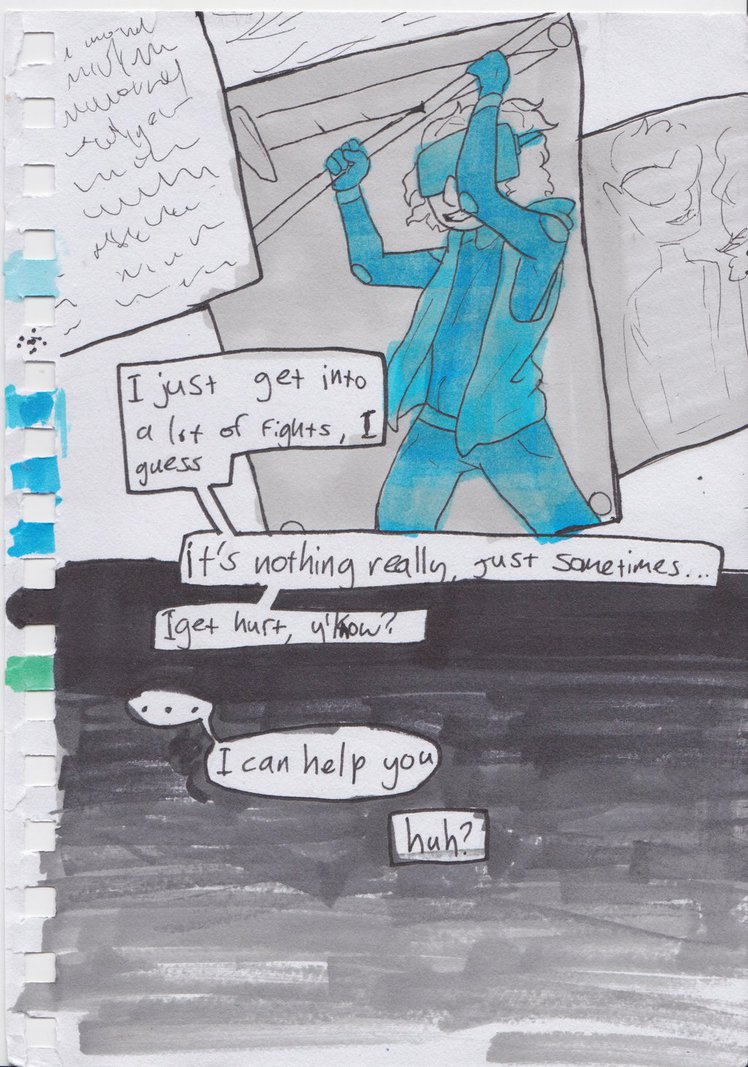 I just get into
a lot of fights, I
guess
it's nothing really, just sometimes...
I get hurt, y'know?
...
I can help you
huh?